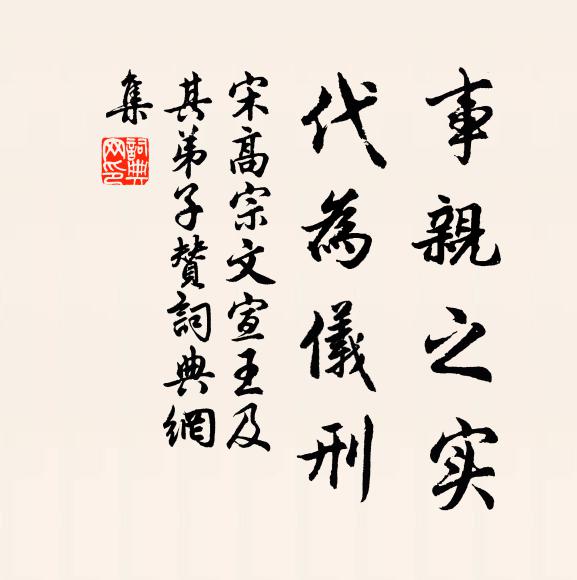 事親之实
代為儀刑
宋高宗文宣王及
其弟子賛詞典網
集
詞典网印